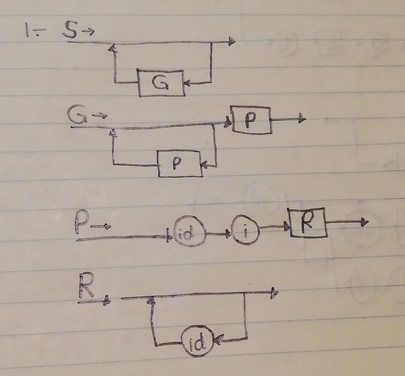 1- S→
G
G→
P
P
P→ id i R
R
id